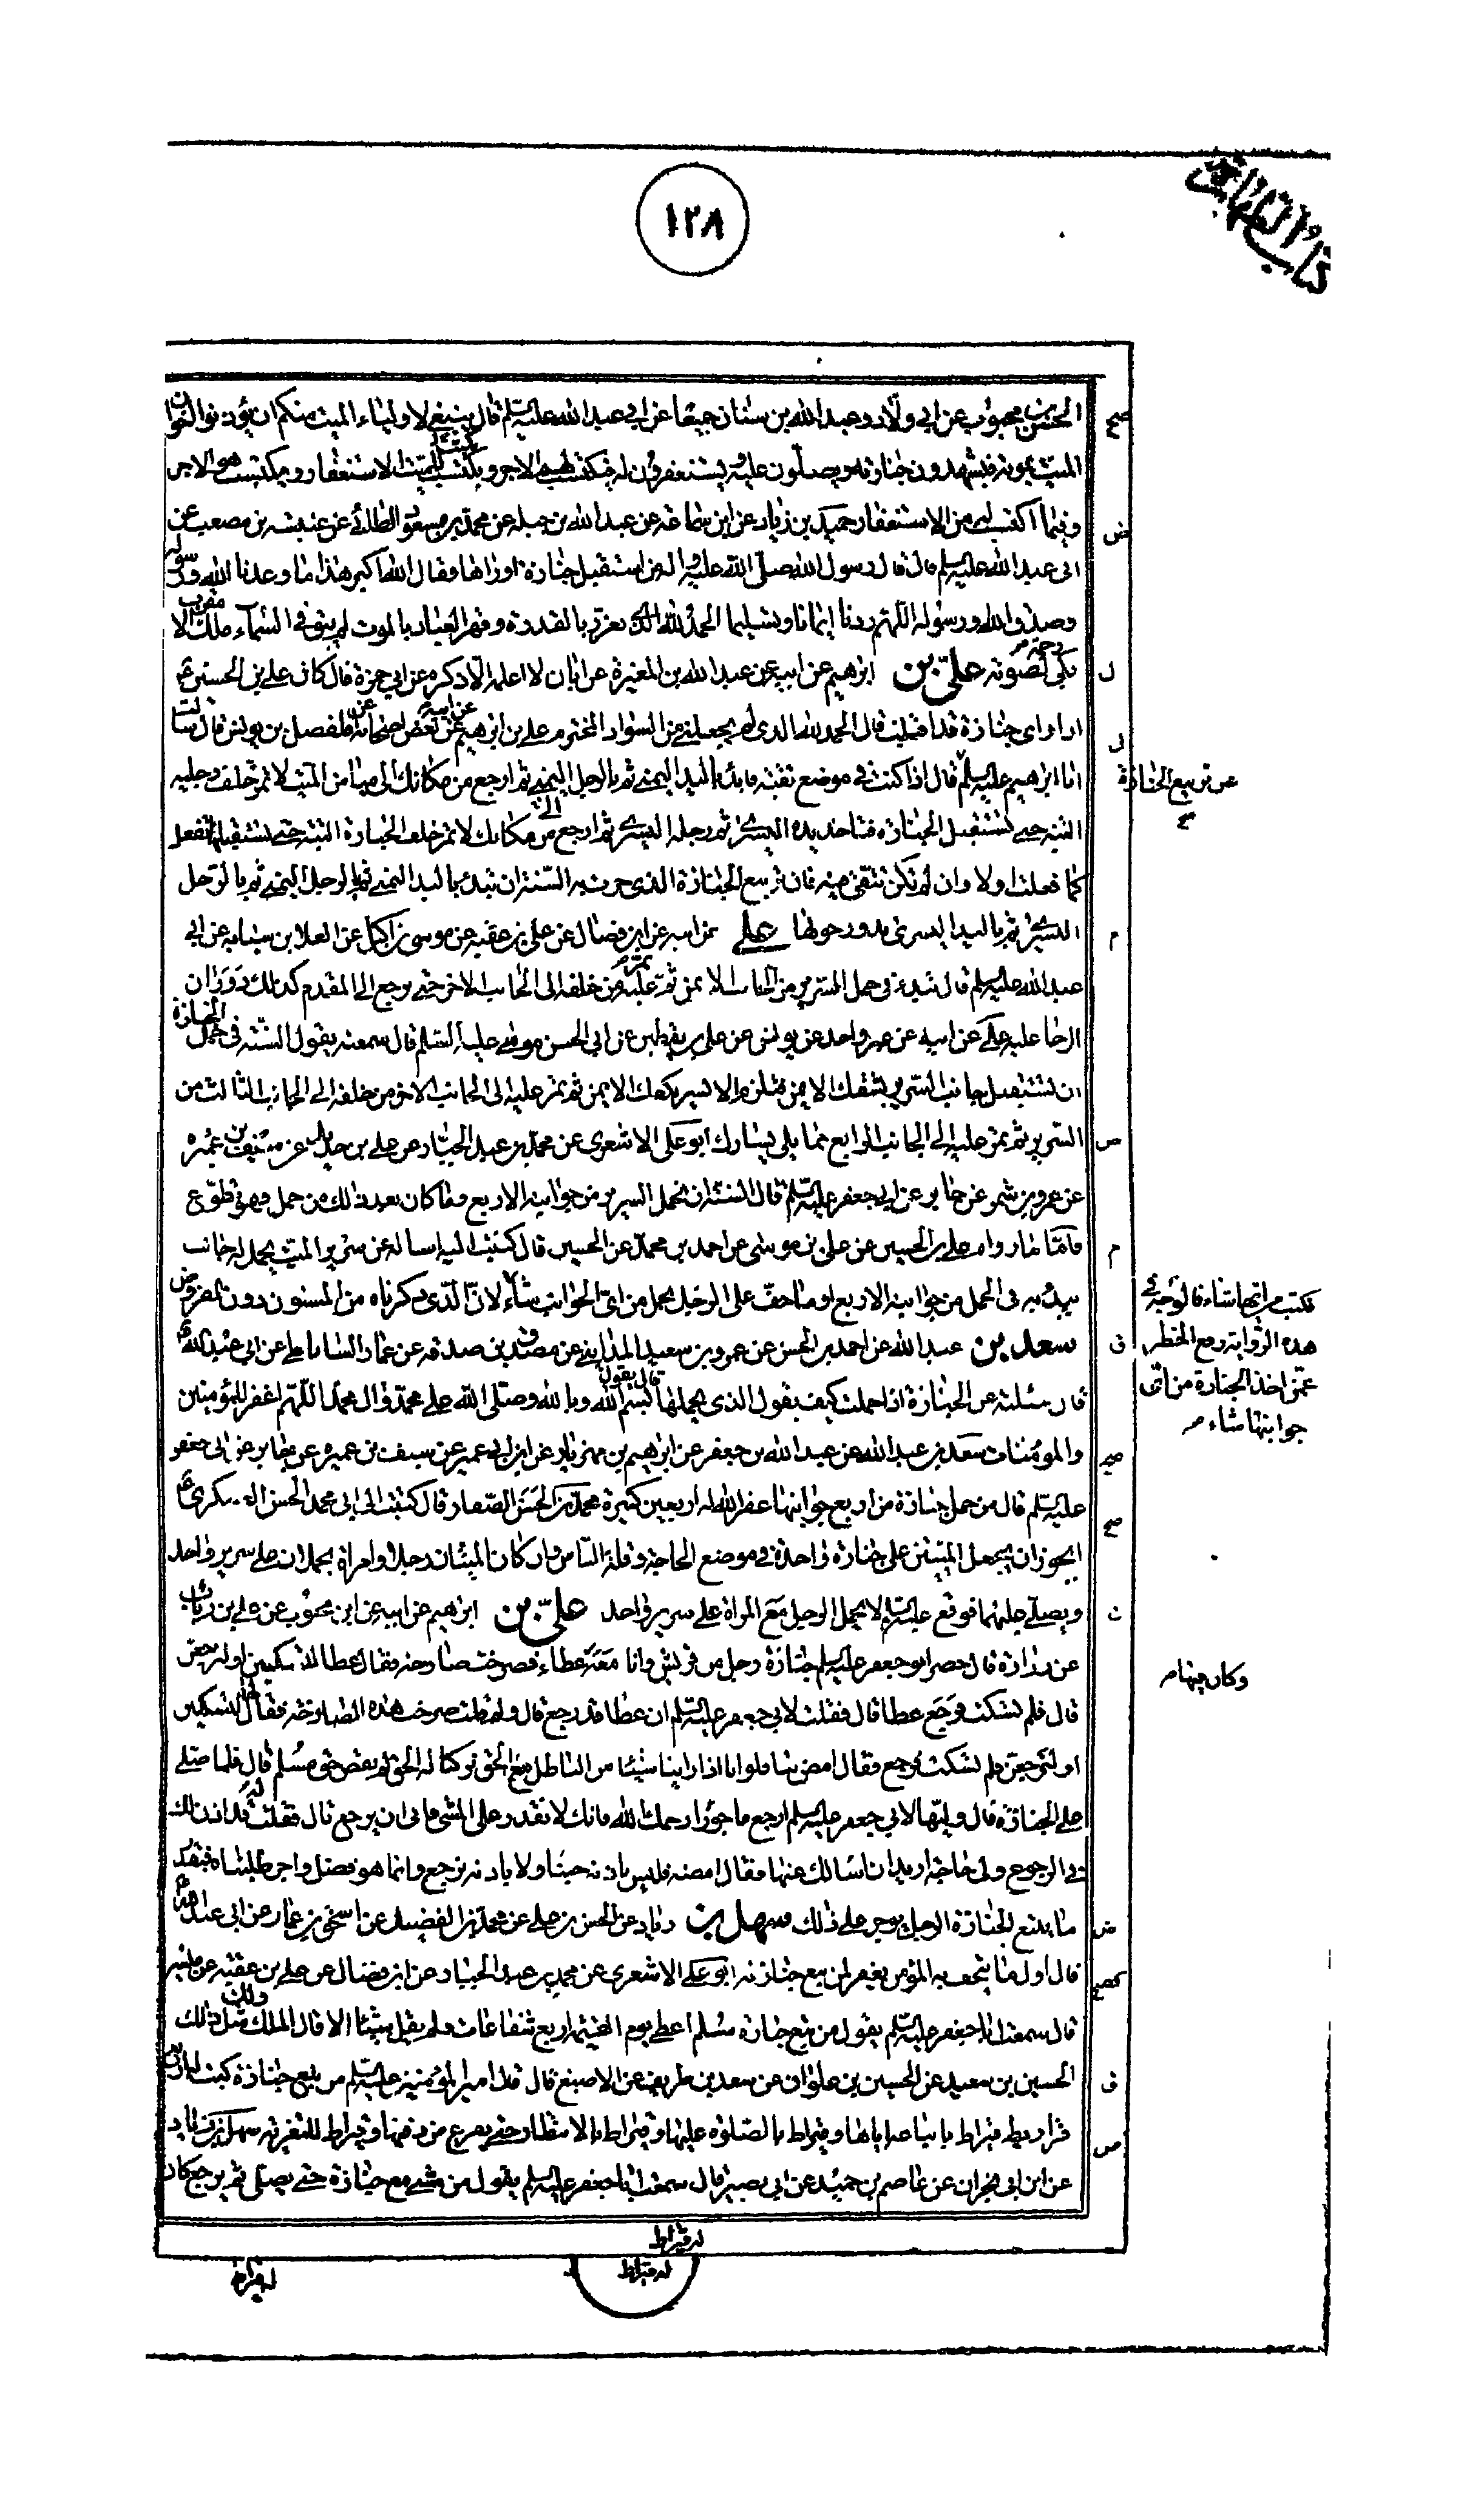 كتاب الطهارة
١٢٨
الحسن بن محبوب عن ابي ولاد وعبد الله بن سنان جميعا عن ابي عبد الله عليه السلم قال ينبغي لاولياء الميت منكم ان يؤذنوا اخوان
الميت بموته فيشهدون جنازته ويصلون عليه ويستغفرون له فيكتسب لهم الاجر ويكتسب للميت الاستغفار ويكتسب هو الاجر
وفيما اكتسب لهم من الاستغفار حميد بن زياد عن ابن سماعة عن عبد الله بن جبله عن محمد بن مسعود الطائي عن عنبسه بن مصعب عن
ابي عبد الله عليه السلم قال قال رسول الله صلى الله عليه واله من استقبل جنازة او راها وقال الله اكبر هذا ما وعدنا الله ورسوله
وصدق الله ورسوله اللهم زدنا ايمانا وتسليما الحمد لله الذي تعزز بالقدرة وقهر العباد بالموت لم يبق في السماء ملك مقرب الا
بكى رحمة لصوته علي بن ابرهيم عن ابيه عن عبد الله بن المغيرة عن ابان لا اعلمه الا ذكره عن ابي حمزة قال كان علي بن الحسين ع
اذا راى جنازة قد اقبلت قال الحمد لله الذي لم يجعلني من السواد المخترم علي بن ابرهيم عن ابيه عن بعض اصحابه عن الفضل بن يونس قال سالت
ابا ابراهيم عليه السلم قال اذا كنت في موضع تقية فابدا باليد اليمنى ثم بالرجل اليمنى ثم ارجع من مكانك الى ميامن الميت لا تمر خلف رجليه
عن تربيع الجنازة
البته حتى تستقبل الجنازه فتاخذ يده اليسرى ثم رجله اليسرى ثم ارجع من مكانك لا تمر خلف الجنازة البته حتى تستقبلها تفعل
كما فعلت اولا وان لم تكن تتقي فيه فان تربيع الجنازة الذي جرت به السنة ان تبدا باليد اليمنى ثم بالرجل اليمنى ثم بالرجل
اليسرى ثم باليد اليسرى حتى تدور حولها علي عن ابيه عن ابن فضال عن علي بن عقبه عن موسى بن اكيل عن العلا بن سيابه عن ابي
عبد الله عليه السلم قال تبدء في حمل السرير من الجانب الايمن ثم تمر عليه من خلفه الى الجانب الاخر حتى ترجع الى المقدم كذلك دوران
الرحا عليه علي عن ابيه عن غير واحد عن يونس عن علي بن يقطين عن ابي الحسن موسى عليه السلم قال سمعته يقول السنة في حمل الجنازة
ان تستقبل جانب السرير بشقك الايمن فتلزم الايسر بكفك الايمن ثم تمر عليه الى الجانب الاخر من خلفه الى الجانب الثالث من
السرير ثم تمر عليه الى الجانب الرابع مما يلي يسارك ابو علي الاشعري عن محمد بن عبد الجبار عن علي بن حديد عن سيف بن عميره
عن عمرو بن شمر عن جابر عن ابي جعفر عليه السلم قال السنة ان يحمل السرير من جوانبه الاربع وما كان بعد ذلك من حمل فهو تطوع
فاما ما رواه علي بن الحسين عن علي بن موسى عن احمد بن محمد عن الحسين قال كتبت اليه اساله عن سرير الميت يحمل له جانب
يبدء به في الحمل من جوانبه الاربع او ما خف على الرجل يحمل من اي الجوانب شاء لان الذي ذكرناه من المسنون دون المفروض
فكتب من ايها شاء فالوجه في
هذه الرواية رفع الخطر
عمن اخذ الجنازة من اي
جوانبها شاء
سعد بن عبد الله عن احمد بن الحسن عن عمرو بن سعيد المدايني عن مصدق بن صدقه عن عمار الساباطي عن ابي عبد الله ع
قال سئلته عن الجنازة اذا حملت كيف يقول الذي يحملها قال يقول بسم الله وبالله وصلى الله على محمد وال محمد اللهم اغفر للمؤمنين
والمومنات سعد بن عبد الله عن عبد الله بن جعفر عن ابراهيم بن مهزيار عن ابن ابي عمير عن سيف بن عميره عن جابر عن ابي جعفر
عليه السلم قال من حمل جنازة من اربع جوانبها غفر الله له اربعين كبيرة محمد بن الحسن الصفار قال كتبت الى ابي محمد الحسن العسكري ع
ايجوز ان يجعل الميتين على جنازه واحدة في موضع الحاجة وقلة الناس وان كان الميتان رجلا وامراة يحملان على سرير واحد
ويصلى عليهما فوقع عليه السلم لا يحمل الرجل مع المراة على سرير واحد علي بن ابراهيم عن ابيه عن ابن محبوب عن علي بن رئاب
عن زرارة قال حضر ابو جعفر عليه السلم جنازة رجل من قريش وانا معه وكان فيها عطاء فصرخت صارخه فقال عطا لتسكتين او لنرجعن
قال فلم تسكت فرجع عطا قال فقلت لابي جعفر عليه السلم ان عطا قد رجع قال ولم قلت صرخت هذه الصارخة فقال لها لتسكتين
او لنرجعن فلم تسكت فرجع فقال امض بنا فلو انا اذا راينا شيئا من الباطل مع الحق تركنا له الحق لم نقض حق مسلم قال فلما صلى
على الجنازة قال وليها لابي جعفر عليه السلم ارجع ماجورا رحمك الله فانك لا تقدر على المشي فابى ان يرجع قال فقلت له قد اذن لك
في الرجوع ولي حاجة اريد ان اسالك عنها فقال امضه فليس باذنه جئنا ولا باذنه نرجع وانما هو فضل واجر طلبناه فبقدر
ما يتبع الجنازة الرجل يوجر على ذلك سهل بن زياد عن الحسن بن علي عن محمد بن الفضيل عن اسحق بن عمار عن ابي عبد الله ع
قال اول ما يتحف به المؤمن يغفر لمن تبع جنازته ابو علي الاشعري عن محمد بن عبد الجبار عن ابن فضال عن علي بن عقبه عن ميسر
قال سمعت ابا جعفر عليه السلم يقول من تبع جنازه مسلم اعطي يوم القيمة اربع شفاعات ولم يقل شيئا الا قال الملك ولك مثل ذلك
الحسين بن سعيد عن الحسين بن علوان عن سعد بن طريف عن الاصبغ قال قال امير المؤمنين عليه السلم من تبع جنازة كتب له اربع
قراريط قيراط باتباعه اياها وقيراط بالصلوة عليها وقيراط بالانتظار حتى يفرغ من دفنها وقيراط للتعزيه سهل بن زياد
عن ابن ابي نجران عن عاصم بن حميد عن ابي بصير قال سمعت ابا جعفر عليه السلم يقول من مشى مع جنازة حتى يصلى ثم رجع كان
له قيراط
له قيراط
له قيراط